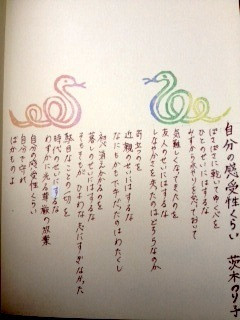 自分の感受性くらい　茨木のり子
ぱさぱさに乾いてゆく心を
ひとのせいにはするな
みずから水やりを怠っておいて
気難しくなってきたのを
友人のせいにはするな
しなやかさを失ったのはどちらなのか
苛立つのを
近親のせいにはするな
なにもかも下手だったのはわたくし
初心消えかかるのを
暮しのせいにはするな
そもそもが ひよわな志にすぎなかった
駄目なことの一切を
時代のせいにはするな
わずかに光る尊厳の放棄
自分の感受性くらい
自分で守れ
ばかものよ